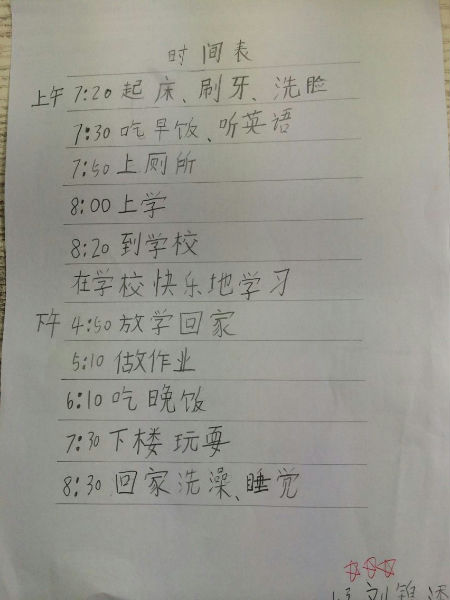 时间表
上午 7:20 起床、刷牙、洗脸
7:30 吃早饭、听英语
7:50 上厕所
8:00 上学
8:20 到学校
在学校快乐地学习
下午 4:50 放学回家
5:10 做作业
6:10 吃晚饭
7:30 下楼玩耍
8:30 回家洗澡、睡觉
刘